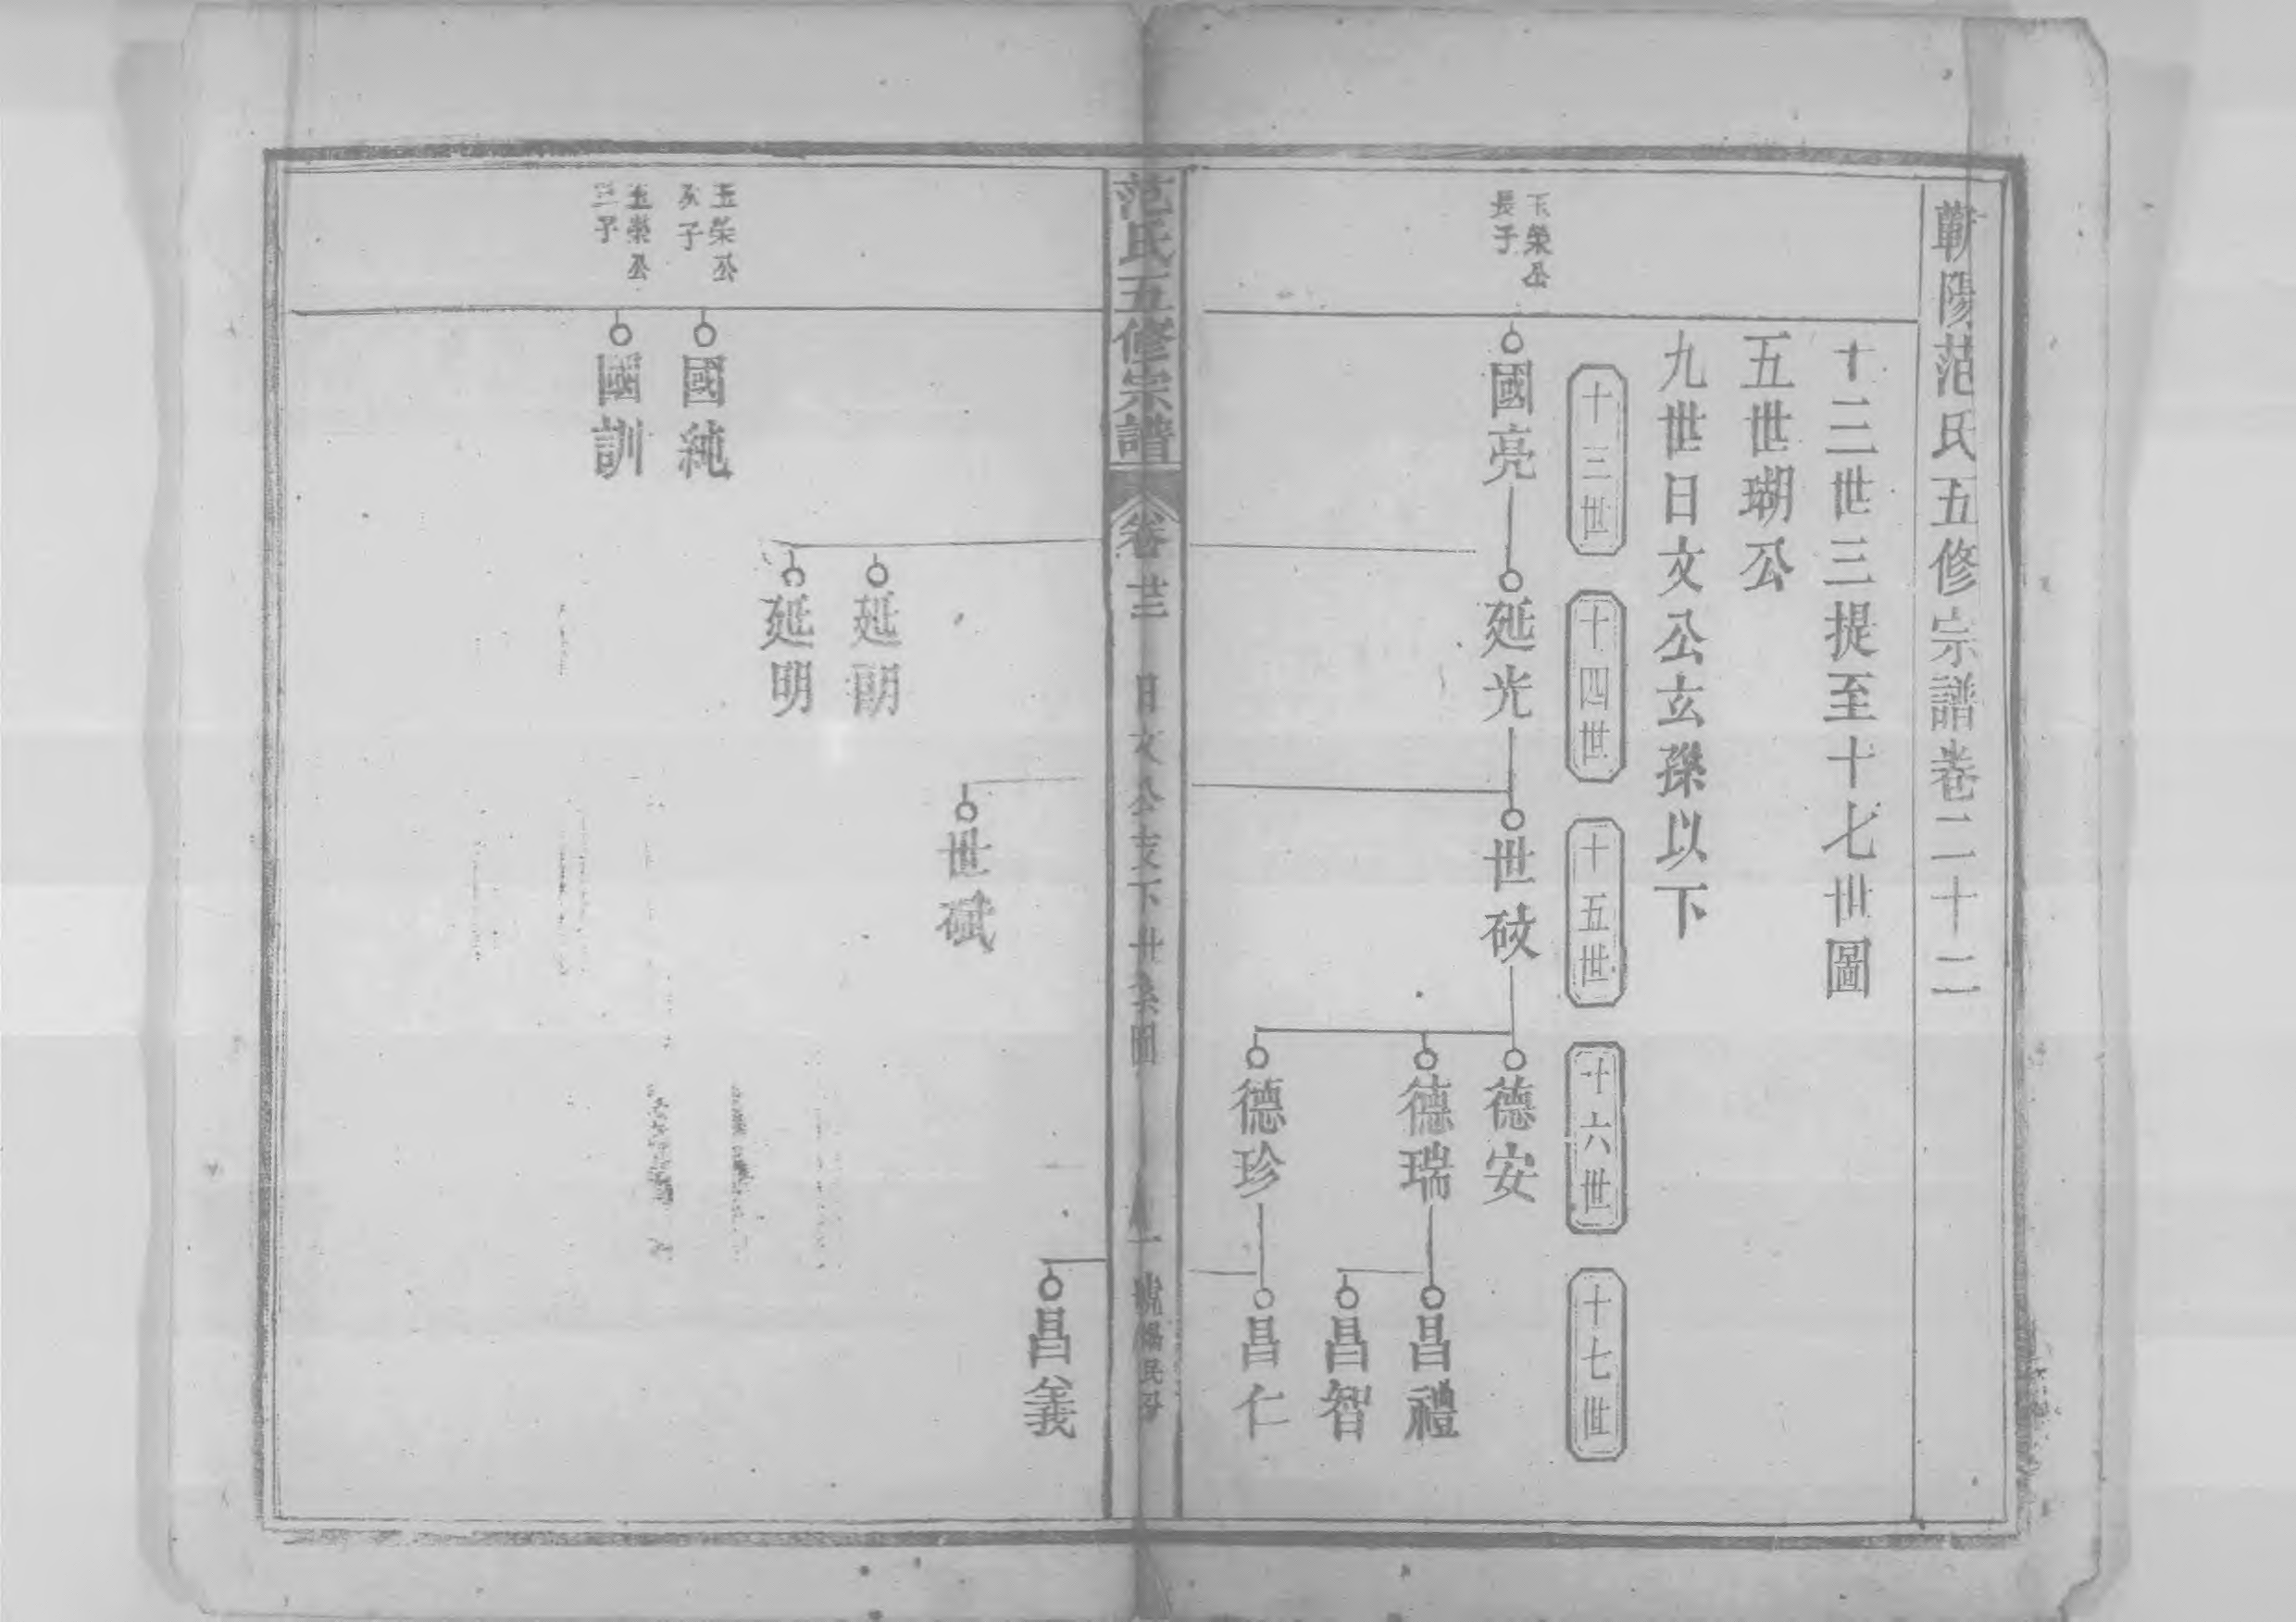 蘄陽范氏五修宗譜卷二十二
十三世三提至十七世圖
五世瑚公
九世日文公玄孫以下
十三世
十四世
十五世
十六世
十七世
玉榮公
長子
國亮
延光
世砇
德安
德瑞
昌禮
昌智
德珍
昌仁
范氏五修宗譜
卷廿二
日文公支下世系圖
一
昌義
世碔
延朗
延明
玉榮公
次子
國純
玉榮公
三子
國訓